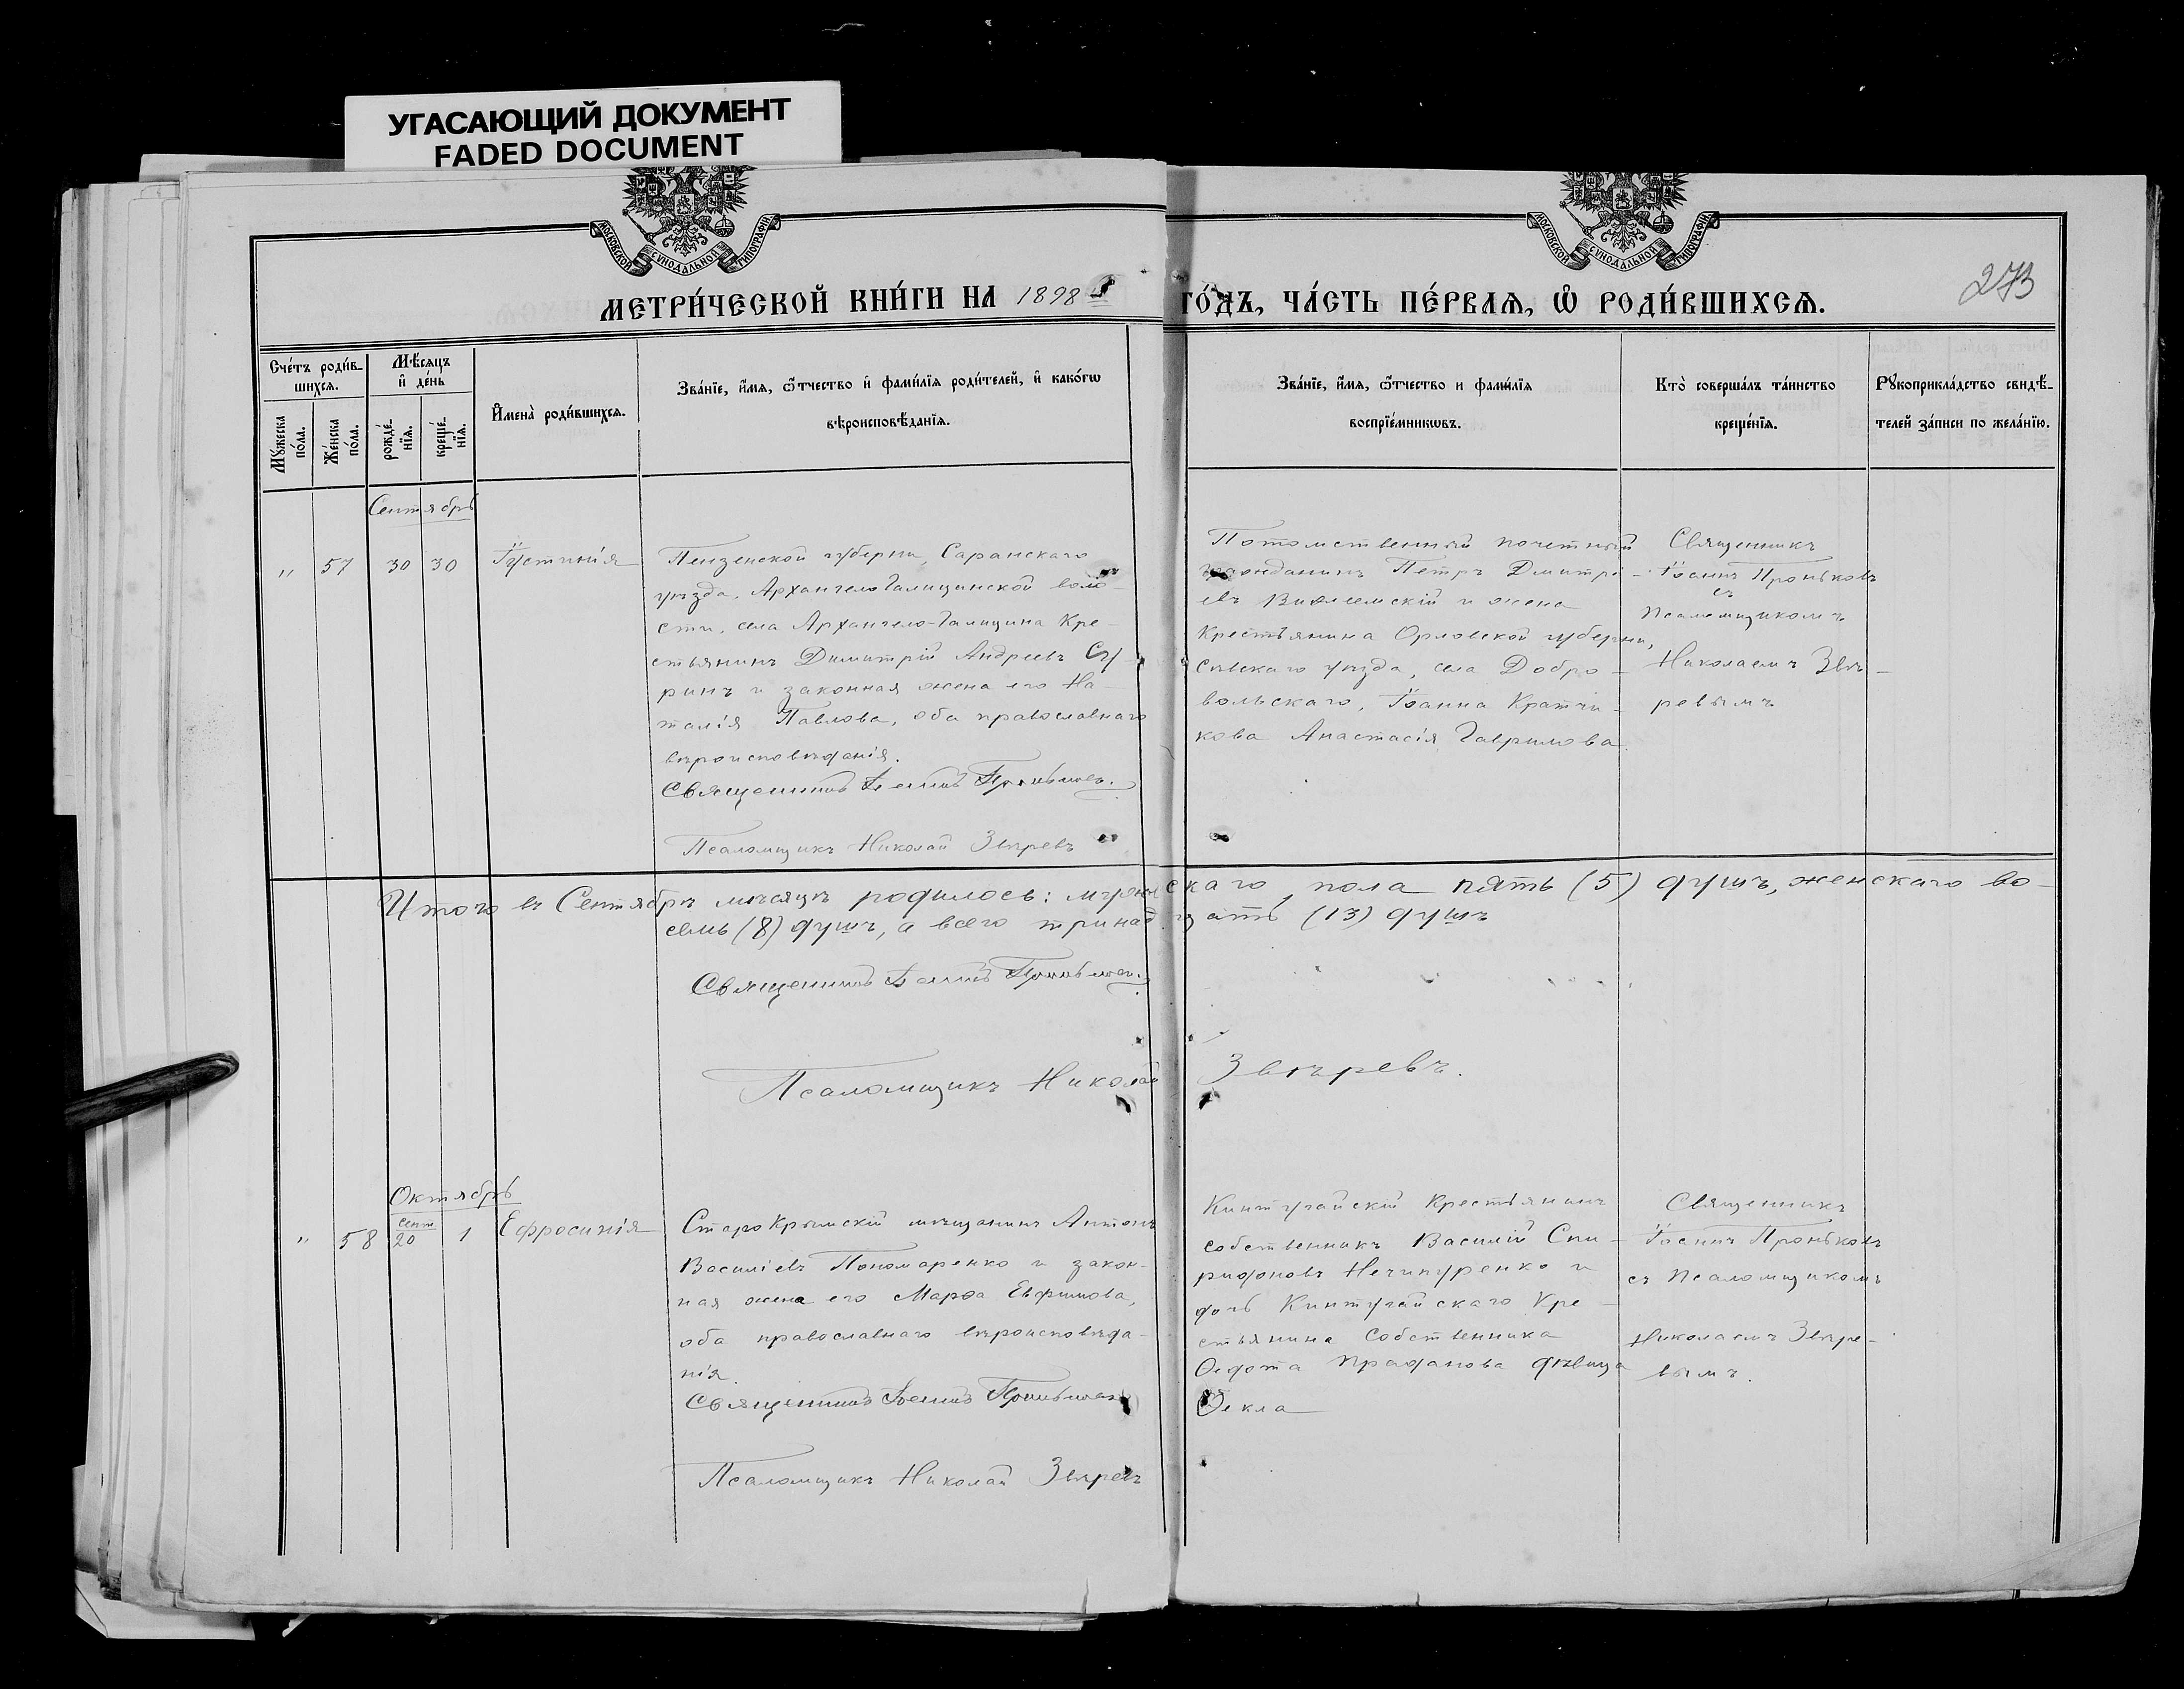 УГАСАЮЩИЙ ДОКУМЕНТ
FADED DOCUMENT
МОСКОВСКОЙ СУНОДАЛЬНОЙ ТИПОГРАФІИ
МОСКОВСКОЙ СУНОДАЛЬНОЙ ТИПОГРАФІИ
273
МЕТРИ́ЧЕСКОЙ КНИ́ГИ НА 1898 ГО́ДЪ, ЧА́СТЬ ПЕ́РВАѦ, Ѡ РОДИ́ВШИХСѦ.
Сче́тъ роди́в-
шихсѧ.
Мꙋ́жеска по́ла.
Же́нска по́ла.
Мѣ́сѧцъ
и҆ де́нь
рожде́-
нїѧ.
креще́-
нїѧ.
И҆мена̀ роди́вшихсѧ.
Зва́нїе, и҆́мѧ, ѻ҆́тчество и҆ фами́лїѧ роди́телей, и҆ како́гѡ
вѣроисповѣ́данїѧ.
Зва́нїе, и҆́мѧ, ѻ҆́тчество и фами́лїѧ
воспрїе́мникѡвъ.
Кто̀ соверша́лъ та́инство
креще́нїѧ.
Рꙋкоприкла́дство свидѣ́-
телей за́писи по жела́нїю.
Сентябрь
" 57 30 30 Іустинія
Пензенской губерніи, Саранскаго
уѣзда, Архангело Галицинской воло-
сти, села Архангело-Галицина Кре-
стьянинъ Димитрій Андреевъ Су-
ринъ и законная жена его На-
талія Павлова, оба православнаго
вѣроисповѣданія.
Священникъ Іоаннъ Проньковъ.
Псаломщикъ Николай Звѣревъ
Потомственный почетный
гражданинъ Петръ Дмитрі-
евъ Виѳлеемскій и жена
Крестьянина Орловской губерніи,
Сѣвскаго уѣзда, села Добро-
вольскаго, Іоанна Кратчи-
кова Анастасія Гаврилова.
Священникъ
Іоаннъ Проньковъ
съ
псаломщикомъ
Николаемъ Звѣ-
ревымъ
Итого въ Сентябрѣ мѣсяцѣ родилось: мужескаго пола пять (5) душъ, женскаго во-
семь (8) душъ, а всего тринадцать (13) душъ
Священникъ Іоаннъ Проньковъ.
Псаломщикъ Николай Звѣревъ.
Октябрь
" 58 Сент 20 1 Ефросинія
Старокрымскій мѣщанинъ Антонъ
Василіевъ Пономаренко и закон-
ная жена его Марѳа Евфимова,
оба православнаго вѣроисповѣда-
нія.
Священникъ Іоаннъ Проньковъ
Псаломщикъ Николай Звѣревъ
Кинтугайскій Крестьянинъ
собственникъ Василій Спи-
ридоновъ Нечипуренко и
дочь Кинтугайскаго Кре-
стьянина Собственника
Ѳедота дѣвица
Ѳекла
Священникъ
Іоаннъ Проньковъ
съ Псаломщикомъ
Николаемъ Звѣре-
вымъ.